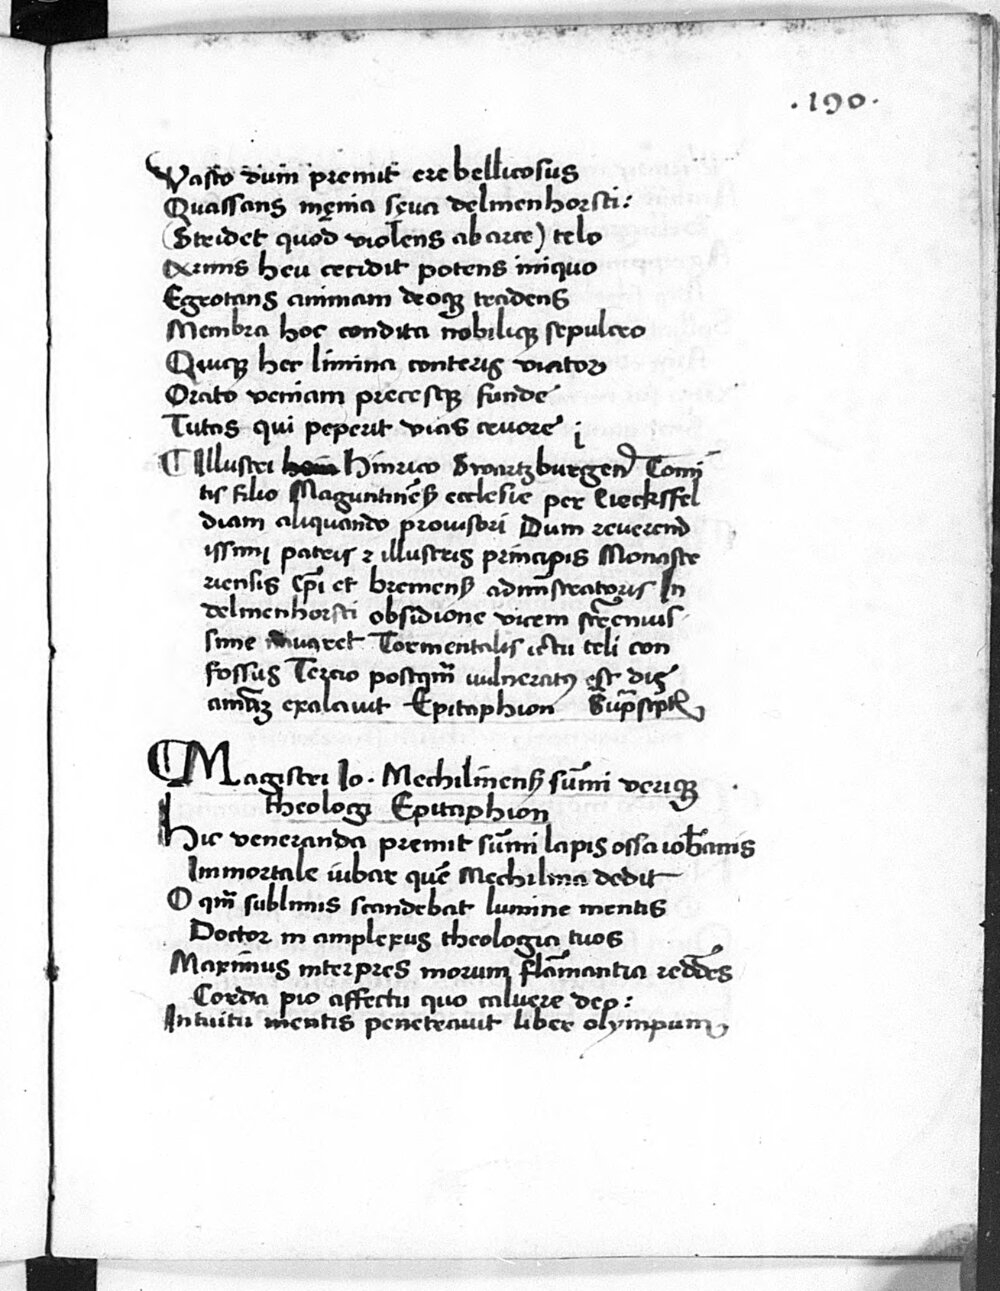 .190.
Vasto dum premit ere bellicosus
Quassans męnia sęua delmenhorsti:
(Stridet quod violens ab arce) telo
Eximis heu cecidit potens iniquo
Egrotans animam deoq; tradens
Membra hoc condita nobiliq; sepulcro
Quiq; hec limina conteris viator
Orato veniam precesq; funde
Tutas qui peperit vias cruore i
Illustri Hinrico Swartzburgen Comi
tis filio Maguntineñ ecclesie per Eiecksfel
diam aliquando prouisori Dum reuerend
issimi patris ⁊ illustris principis Monaste
riensis epi et bremens administratoris In
delmenhorsti obsidione vicem strenuis
sime Tormentalis ictu teli con
fossus Tercio postqm̄ uulneratꝰ est die
animā exalauit Epitaphion
Magistri Io. Mechlinens sūmi veriq;
theologi Epitaphion
Hic veneranda premit sūmi lapis ossa iohānis
Immortale iubar quē Mechilina dedit
O qm̄ sublimis scandebat lumine mentis
Doctor in amplexus theologia tuos
Maximus interpres morum flāmantia reddēs
Corda pio affectu quo caluere deo:
Intuitu mentis penetrauit liber olympum